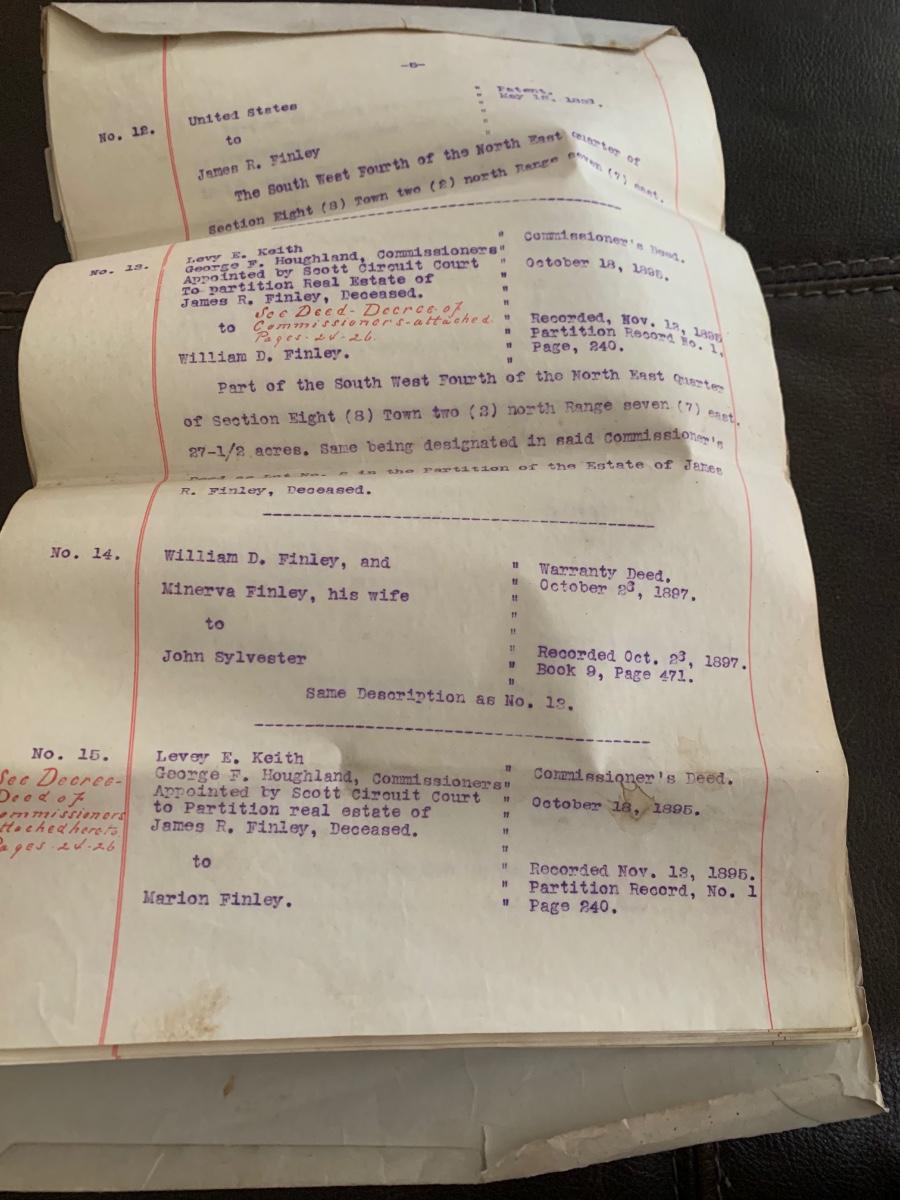 -5-
No. 12.
United States
to
James R. Finley
" Patent.
" May 12.
"
"
The South West Fourth of the North East Quarter of
Section Eight (8) Town two (2) north Range seven (7) east.
No. 13.
Levy E. Keith
George F. Houghland, Commissioners"
Appointed by Scott Circuit Court "
To partition Real Estate of "
James R. Finley, Deceased. "
See Deed - Decree of
Commissioners - attached.
Pages - 24 - 26.
to
William D. Finley.
" Commissioner's Deed.
" October 18, 1895.
" Recorded, Nov. 12, 1895
" Partition Record No. 1,
" Page, 240.
Part of the South West Fourth of the North East Quarter
of Section Eight (8) Town two (2) north Range seven (7) east.
27-1/2 acres. Same being designated in said Commissioner's
Deed as Lot No. in the Partition of the Estate of James
R. Finley, Deceased.
No. 14.
William D. Finley, and
Minerva Finley, his wife
to
John Sylvester
" Warranty Deed.
" October 23, 1897.
"
"
" Recorded Oct. 23, 1897.
" Book 9, Page 471.
"
Same Description as No. 13.
No. 15.
See Decree-
Deed of
ommissioners
ttached hereto
ages - 24 - 26
Levey E. Keith
George F. Houghland, Commissioners"
Appointed by Scott Circuit Court "
to Partition real estate of "
James R. Finley, Deceased. "
to
Marion Finley.
" Commissioner's Deed.
" October 18, 1895.
"
" Recorded Nov. 12, 1895.
" Partition Record, No. 1
" Page 240.